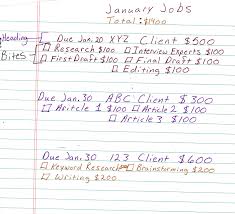 January Jobs
Total: $1400
Heading Due Jan. 20 XYZ Client $500
Bites □ Research $100 □ Interview Experts $100
□ First Draft $100 □ Final Draft $100
□ Editing $100
Due Jan. 30 ABC Client $300
□ Article 1 $100 □ Article 2 $100
□ Article 3 $100
Due Jan. 30 123 Client $600
□ Keyword Research $200 □ Brainstorming $200
□ Writing $200